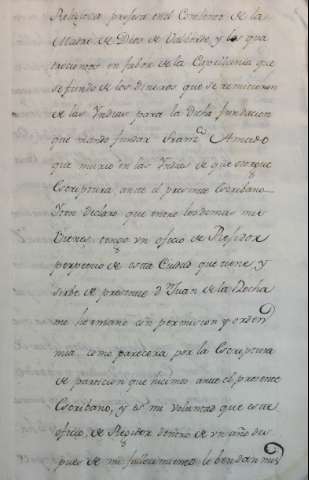 Religiosa profesa en el Conbento de la
Madre de Dios de Valverde, y los qua
trecientos en fabor de la Capellania que
se fundo de los dineros que se remitieron
de las Yndias para la dicha fundacion
que mando fundar Franco Amado
que murio en las Yndias de que otorgue
Escriptura ante el presente Escribano
Yten declaro que entre los demas mis
Vienes, tengo un oficio de Rejidor
perpetuo de esta Ciudad que tiene, y
sirbe de presente D Juan de la Rocha
mi hermano con permision y orden
mia como parecera por la Escriptura
de particion que hicimos ante el presente
Escribano, y es mi voluntad que este
oficio de Rejidor dentro de un año des
pues de mi fallecimiento le bendan mis